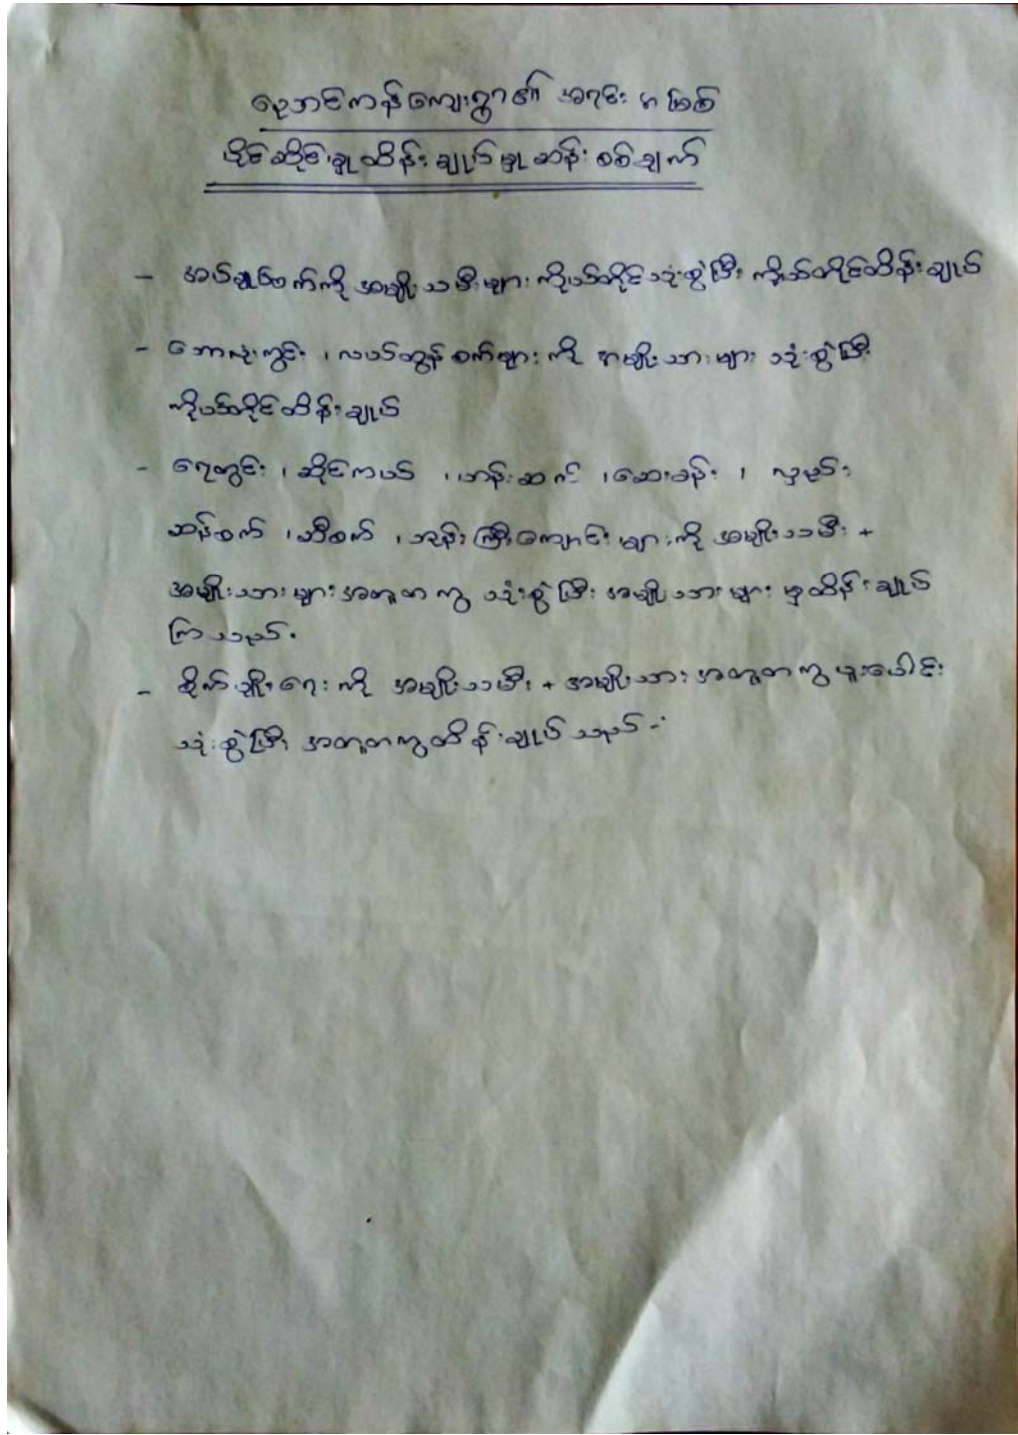 ညောင်ကန်ကျေးရွာ၏ အရင်းအမြစ်
ပိုင်ဆိုင်မှု ထိန်းချုပ်မှု ဆန်းစစ်ချက်
- အပ်ချုပ်စက်ကို အမျိုးသမီးများ ကိုယ်တိုင်သုံးစွဲပြီး ကိုယ်တိုင်ထိန်းချုပ်
- ဘောလုံးကွင်း ၊ လယ်ထွန်စက်များ ကို အမျိုးသားများ သုံးစွဲပြီး
ကိုယ်တိုင်ထိန်းချုပ်
- ရေတွင်း ၊ ဆိုင်ကယ် ၊ ဟန်းဆက် ၊ ဆေးခန်း ၊ လှည်း
ဆန်စက် ၊ ဆီစက် ၊ ဘုန်းကြီးကျောင်း များကို အမျိုးသမီး +
အမျိုးသားများ အတူတကွ သုံးစွဲပြီး အမျိုးသားများ မှထိန်းချုပ်
ကြသည်.
- စိုက်ပျိုးရေး ကို အမျိုးသမီး + အမျိုးသား အတူတကွ ပူးပေါင်း
သုံးစွဲပြီး အတူတကွထိန်းချုပ်သည် -: